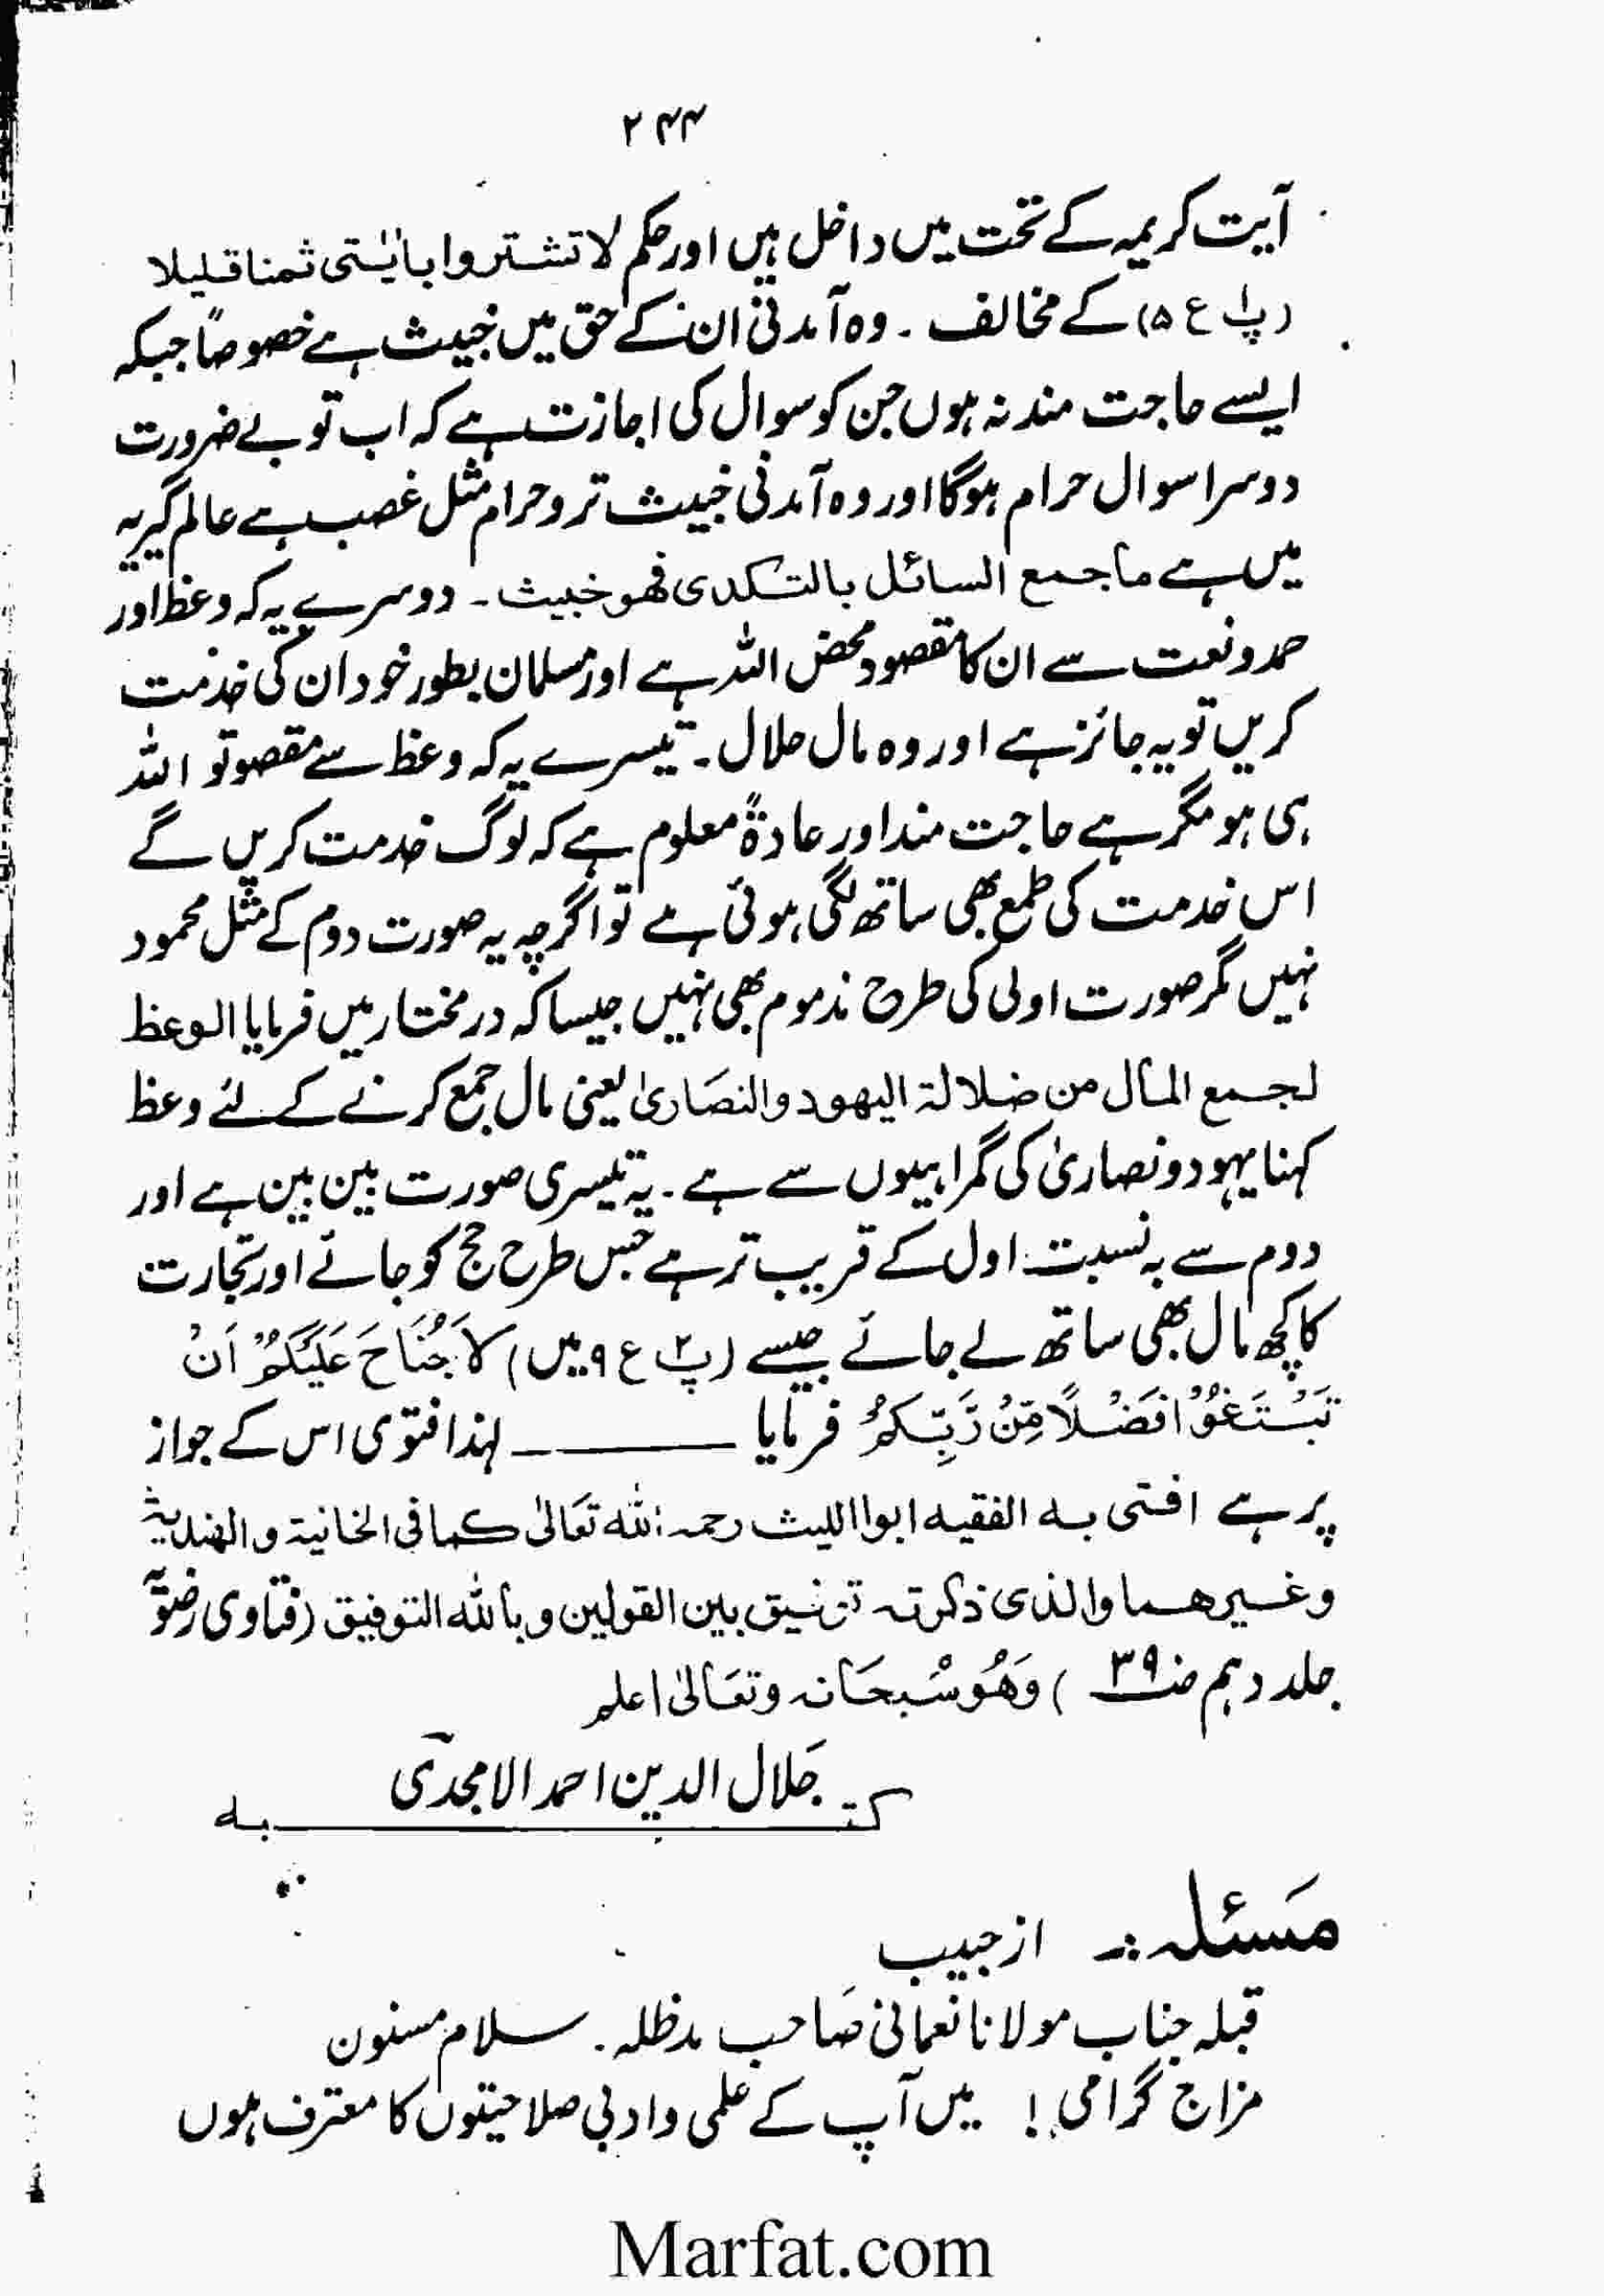 ۲۴۴
آیت کریمہ کے تحت میں داخل ہیں اور حکم لا تشتروا باٰیٰتی ثمنا قلیلا
(پ۱ ع ۵) کے مخالف ۔ وہ آمدنی ان کے حق میں خبیث ہے خصوصاً جبکہ
ایسے حاجت مند نہ ہوں جن کو سوال کی اجازت ہے کہ اب تو بے ضرورت
دوسرا سوال حرام ہوگا اور وہ آمدنی خبیث تر و حرام مثل غصب ہے عالم گیریہ
میں ہے ما جمع السائل بالتکدی فھو خبیث ۔ دوسرے یہ کہ وعظ اور
حمد و نعت سے ان کا مقصود محض اللہ ہے اور مسلمان بطور خود ان کی خدمت
کریں تو یہ جائز ہے اور وہ مال حلال ۔ تیسرے یہ کہ وعظ سے مقصو تو اللہ
ہی ہو مگر ہے حاجت مند اور عادۃً معلوم ہے کہ لوگ خدمت کریں گے
اس خدمت کی طمع بھی ساتھ لگی ہوئی ہے تو اگرچہ یہ صورت دوم کے مثل محمود
نہیں مگر صورت اولی کی طرح مذموم بھی نہیں جیسا کہ درمختار میں فرمایا الوعظ
لجمع المال من ضلالۃ الیھود والنصَاریٰ یعنی مال جمع کرنے کے لئے وعظ
کہنا یہود و نصاریٰ کی گمراہیوں سے ہے ۔ یہ تیسری صورت بین بین ہے اور
دوم سے بہ نسبت اول کے قریب تر ہے جس طرح حج کو جائے اور تجارت
کا کچھ مال بھی ساتھ لے جائے جیسے (پ۲ ع ۹ میں) لَاجُنَاحَ عَلَیْکُمْ اَنْ
تَبْتَغُوْا فَضْلًا مِّنْ رَّبِّکُمْ فرمایا ــــــــــ لہذا فتوی اس کے جواز
پر ہے افتی بہ الفقیہ ابوا اللیث رحمہ اللہ تعَالیٰ کما فی الخانیۃ و الھندیۃ
وغیرھما والذی ذکرتہ توفیق بین القولین و باللہ التوفیق (فتاوی رضویہ
جلد دہم ص ۳۹ ) وَھُوَ سُبحَانہ وتعَالیٰ اعلم
جَلال الدین احمد الامجدی
کتبہ
مَسْئلہ :۔ از حبیب
قبلہ جناب مولانا نعمانی صَاحب مدظلہ ۔ سلام مسنون
مزاج گرامی ! میں آپ کے علمی و ادبی صلاحیتوں کا معترف ہوں
Marfat.com